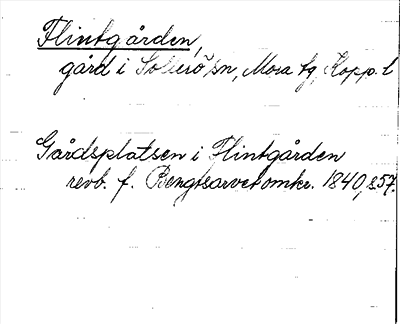 Flintgården,
gård i Sollerö sn, Mora tg, Kopp. l
Gårdsplatsen i Flintgården
revb. f. Bengtsarvet omkr. 1840, s 57.